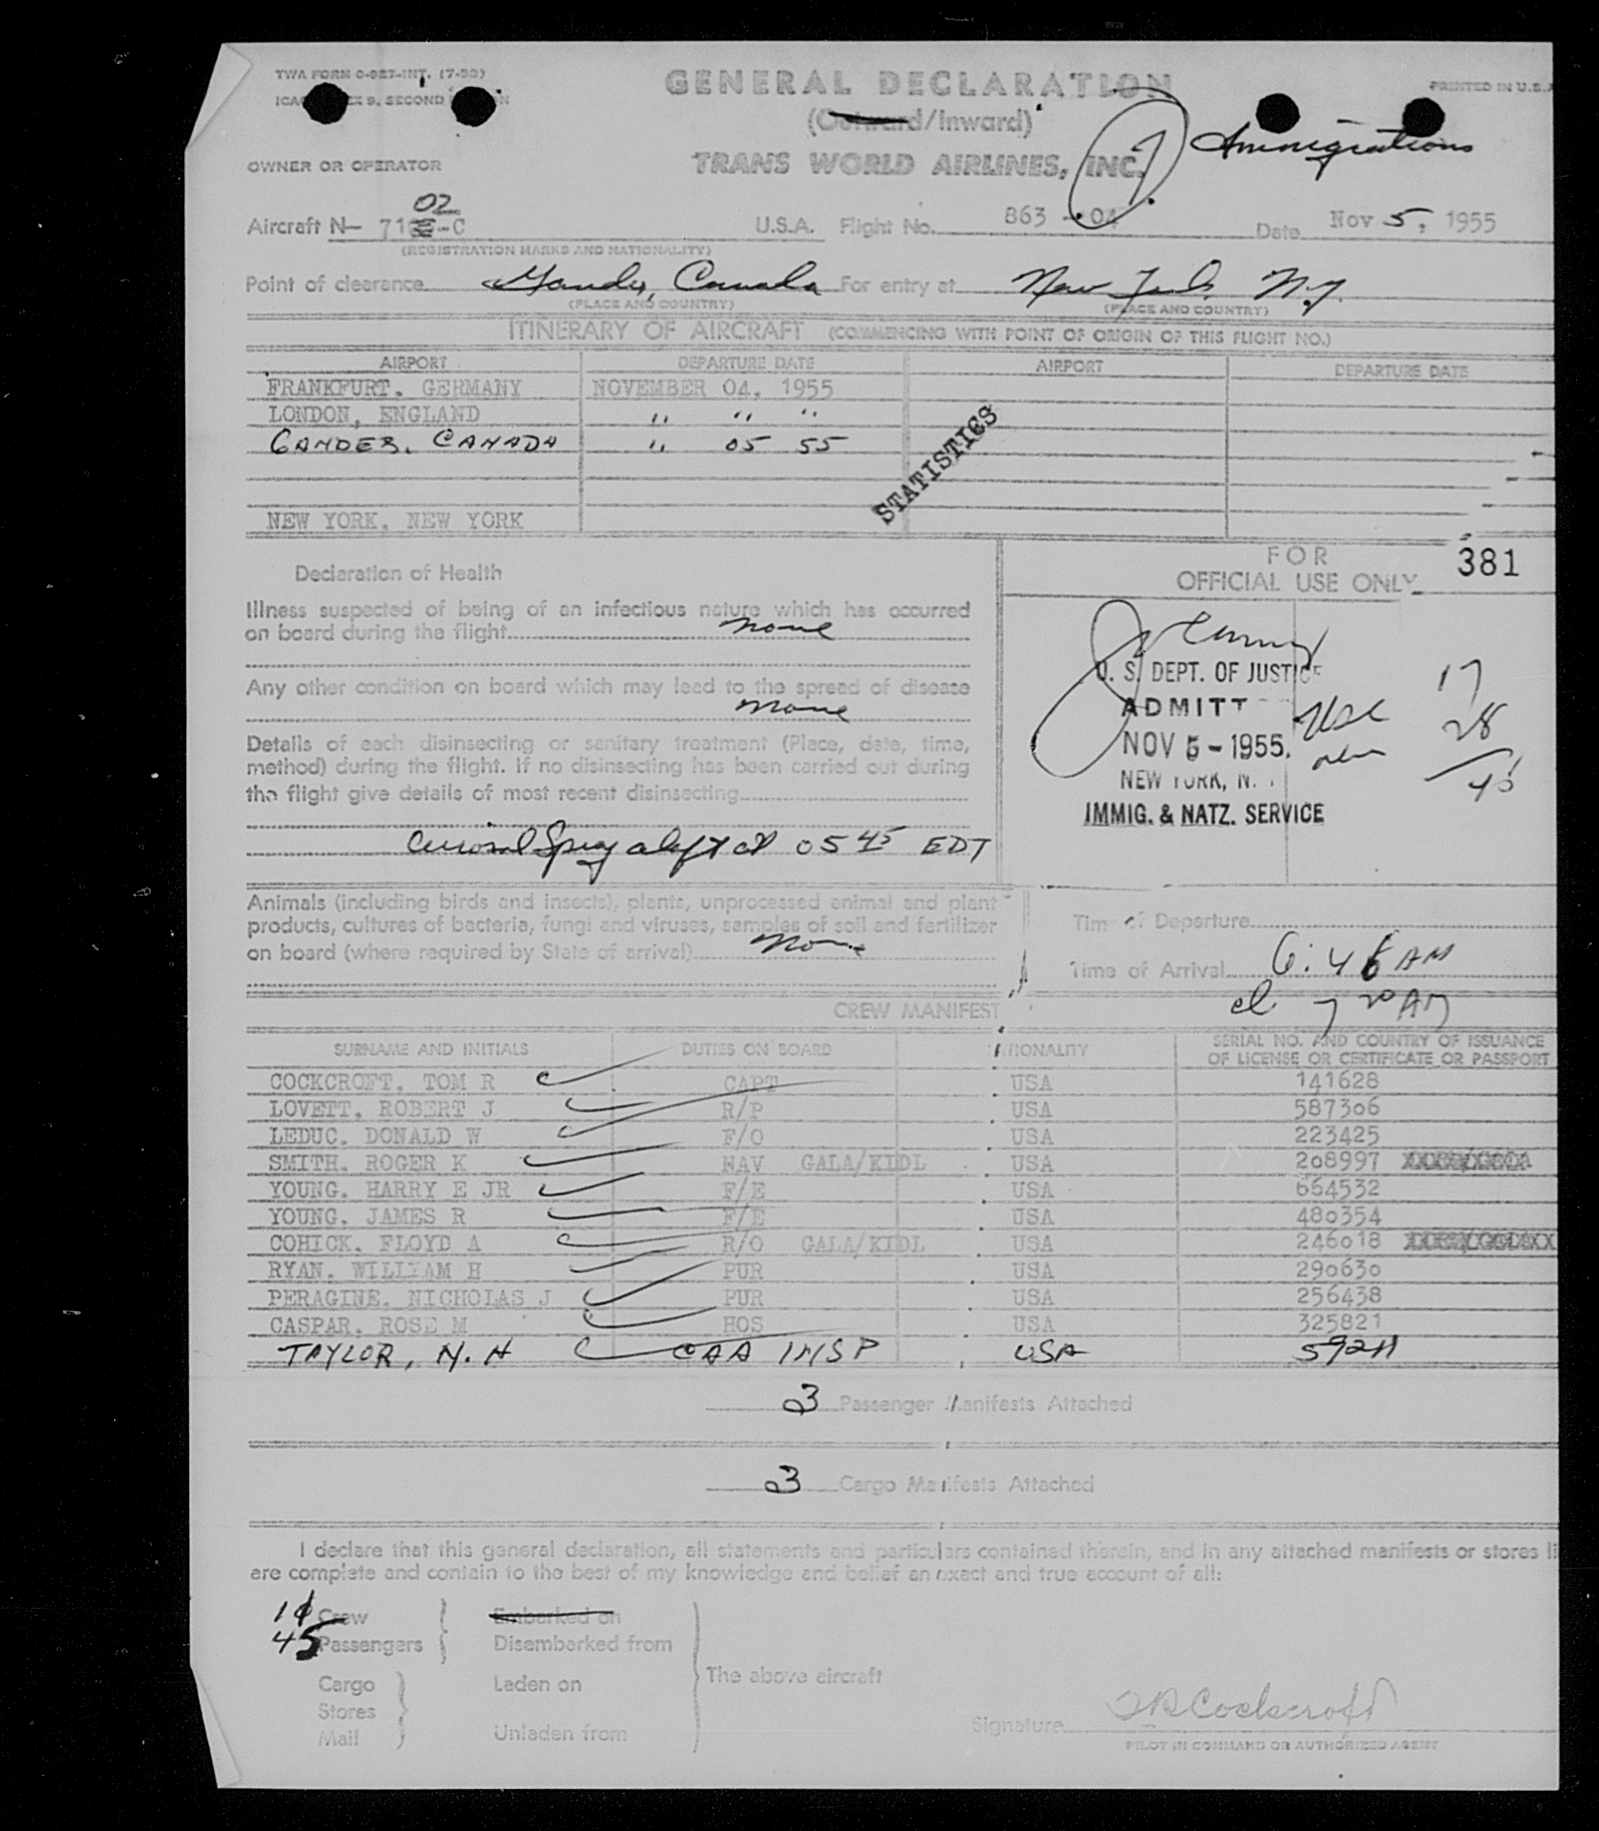 TWA FORM O-927-INT. (7-53)
GENERAL DECLARATION
PRINTED IN U.S.A
SECOND
(Outward/Inward)
Immigrations
OWNER OR OPERATOR
TRANS WORLD AIRLINES, INC.
02
Aircraft N- 71 -C U.S.A. Flight No. 863 - 04 Date Nov 5, 1955
(REGISTRATION MARKS AND NATIONALITY)
Point of clearance Gander, Canada For entry at New York N.Y.
(PLACE AND COUNTRY) (PLACE AND COUNTRY)
ITINERARY OF AIRCRAFT (COMMENCING WITH POINT OF ORIGIN OF THIS FLIGHT NO.)
AIRPORT DEPARTURE DATE AIRPORT DEPARTURE DATE
FRANKFURT, GERMANY NOVEMBER 04, 1955
LONDON, ENGLAND " " "
GANDER, CANADA " 05 55
STATISTICS
NEW YORK, NEW YORK
FOR
OFFICIAL USE ONLY 381
Declaration of Health
Illness suspected of being of an infectious nature which has occurred
on board during the flight none
Any other condition on board which may lead to the spread of disease
none
Details of each disinsecting or sanitary treatment (Place, date, time,
method) during the flight. If no disinsecting has been carried out during
the flight give details of most recent disinsecting
Aerosol Spray aloft at 0545 EDT
U. S. DEPT. OF JUSTICE
ADMITT
NOV 5 - 1955
NEW YORK, N.
IMMIG. & NATZ. SERVICE
usc 17
28
45
Animals (including birds and insects), plants, unprocessed animal and plant
products, cultures of bacteria, fungi and viruses, samples of soil and fertilizer
on board (where required by State of arrival) None
Time of Departure
Time of Arrival 6:45 AM
cl. 7 20 AM
CREW MANIFEST
SURNAME AND INITIALS DUTIES ON BOARD NATIONALITY SERIAL NO. AND COUNTRY OF ISSUANCE
OF LICENSE OR CERTIFICATE OR PASSPORT
COCKCROFT, TOM R CAPT USA 141628
LOVETT, ROBERT J R/P USA 587306
LEDUC, DONALD W F/O USA 223425
SMITH, ROGER K NAV GALA/KIDL USA 208997
YOUNG, HARRY E JR F/E USA 664532
YOUNG, JAMES R F/E USA 480354
COHICK, FLOYD A R/O GALA/KIDL USA 246018
RYAN, WILLIAM H PUR USA 290630
PERAGINE, NICHOLAS J PUR USA 256438
CASPAR, ROSE M HOS USA 325821
TAYLOR, N. H CAA INSP USA 592H
3 Passenger Manifests Attached
3 Cargo Manifests Attached
I declare that this general declaration, all statements and particulars contained therein, and in any attached manifests or stores li
are complete and contain to the best of my knowledge and belief an exact and true account of all:
11 Crew Embarked on
45 Passengers Disembarked from
The above aircraft
Cargo Laden on
Stores
Mail Unladen from
Signature T R Cockcroft
PILOT IN COMMAND OR AUTHORIZED AGENT